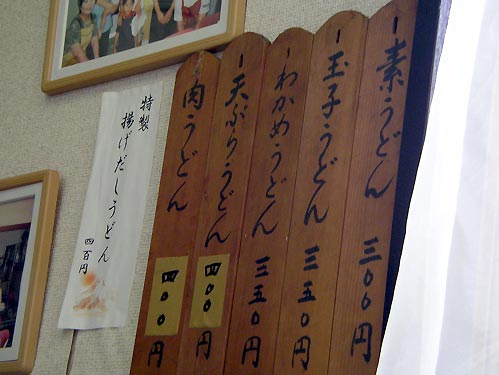 一素うどん 三〇〇円
一玉子うどん 三五〇円
一わかめうどん 三五〇円
一天ぷらうどん 四〇〇円
一肉うどん 四〇〇円
特製
揚げだしうどん
四百円